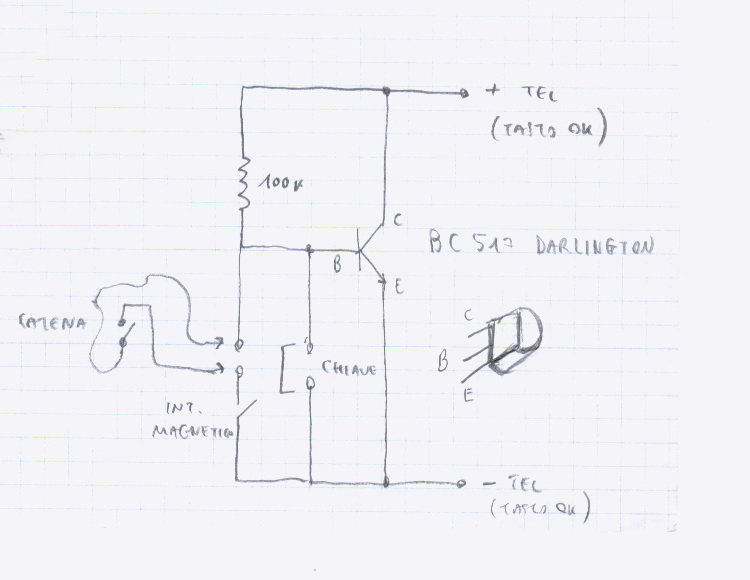 + TEL
(TASTO OK)
100K
C
B
E
BC 517 DARLINGTON
CATENA
CHIAVE
INT.
MAGNETICO
C
B
E
- TEL
(TASTO OK)